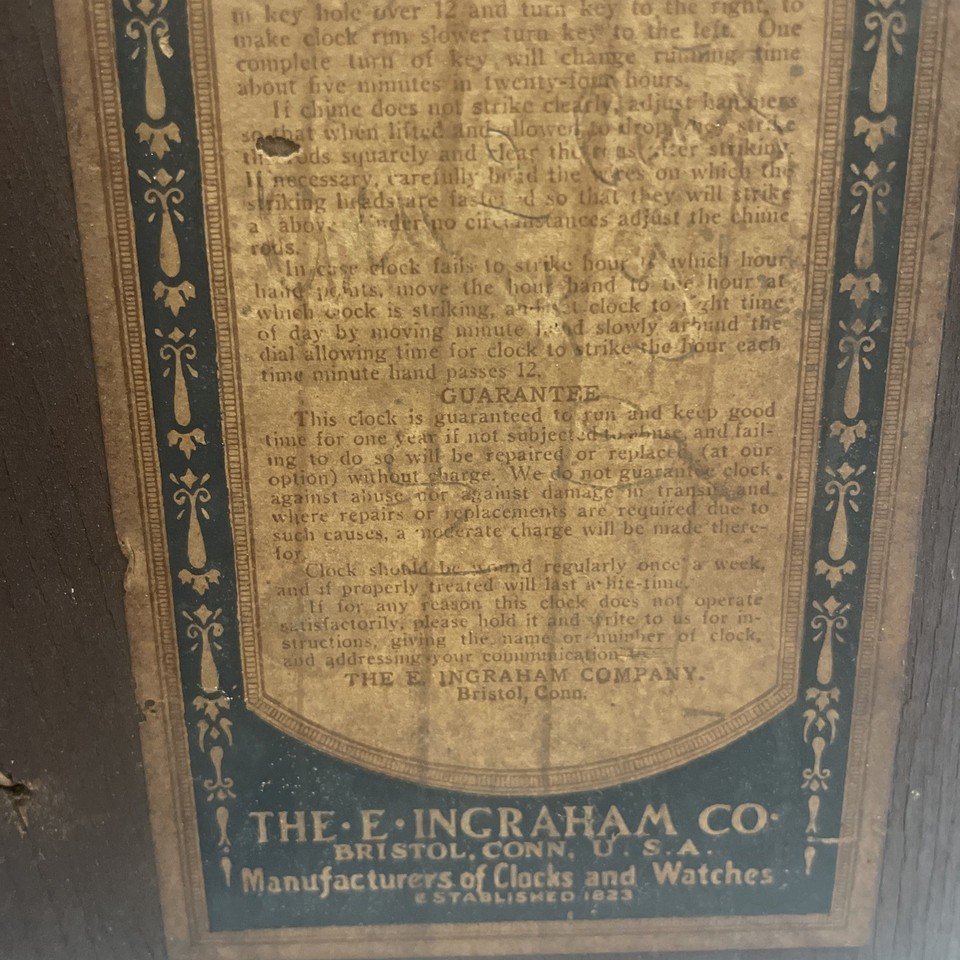 in key hole over 12 and turn key to the right, to
make clock run slower turn key to the left. One
complete turn of key will change running time
about five minutes in twenty-four hours.
If chime does not strike clearly, adjust hammers
so that when lifted and allowed to drop they strike
the rods squarely and clear the rods after striking.
If necessary, carefully bend the wires on which the
striking heads are fastened so that they will strike
a above. Under no circumstances adjust the chime
rods.
In case clock fails to strike hour to which hour
hand points, move the hour hand to the hour at
which clock is striking, and set clock to right time
of day by moving minute hand slowly around the
dial allowing time for clock to strike the hour each
time minute hand passes 12.
GUARANTEE
This clock is guaranteed to run and keep good
time for one year if not subjected to abuse, and fail-
ing to do so will be repaired or replaced (at our
option) without charge. We do not guarantee clock
against abuse nor against damage in transit and
where repairs or replacements are required due to
such causes, a moderate charge will be made there-
for.
Clock should be wound regularly once a week,
and if properly treated will last a life-time.
If for any reason this clock does not operate
satisfactorily, please hold it and write to us for in-
structions, giving the name or number of clock,
and addressing your communication
THE E. INGRAHAM COMPANY.
Bristol, Conn.
THE·E·INGRAHAM CO·
BRISTOL, CONN. U. S. A.
Manufacturers of Clocks and Watches
ESTABLISHED 1823